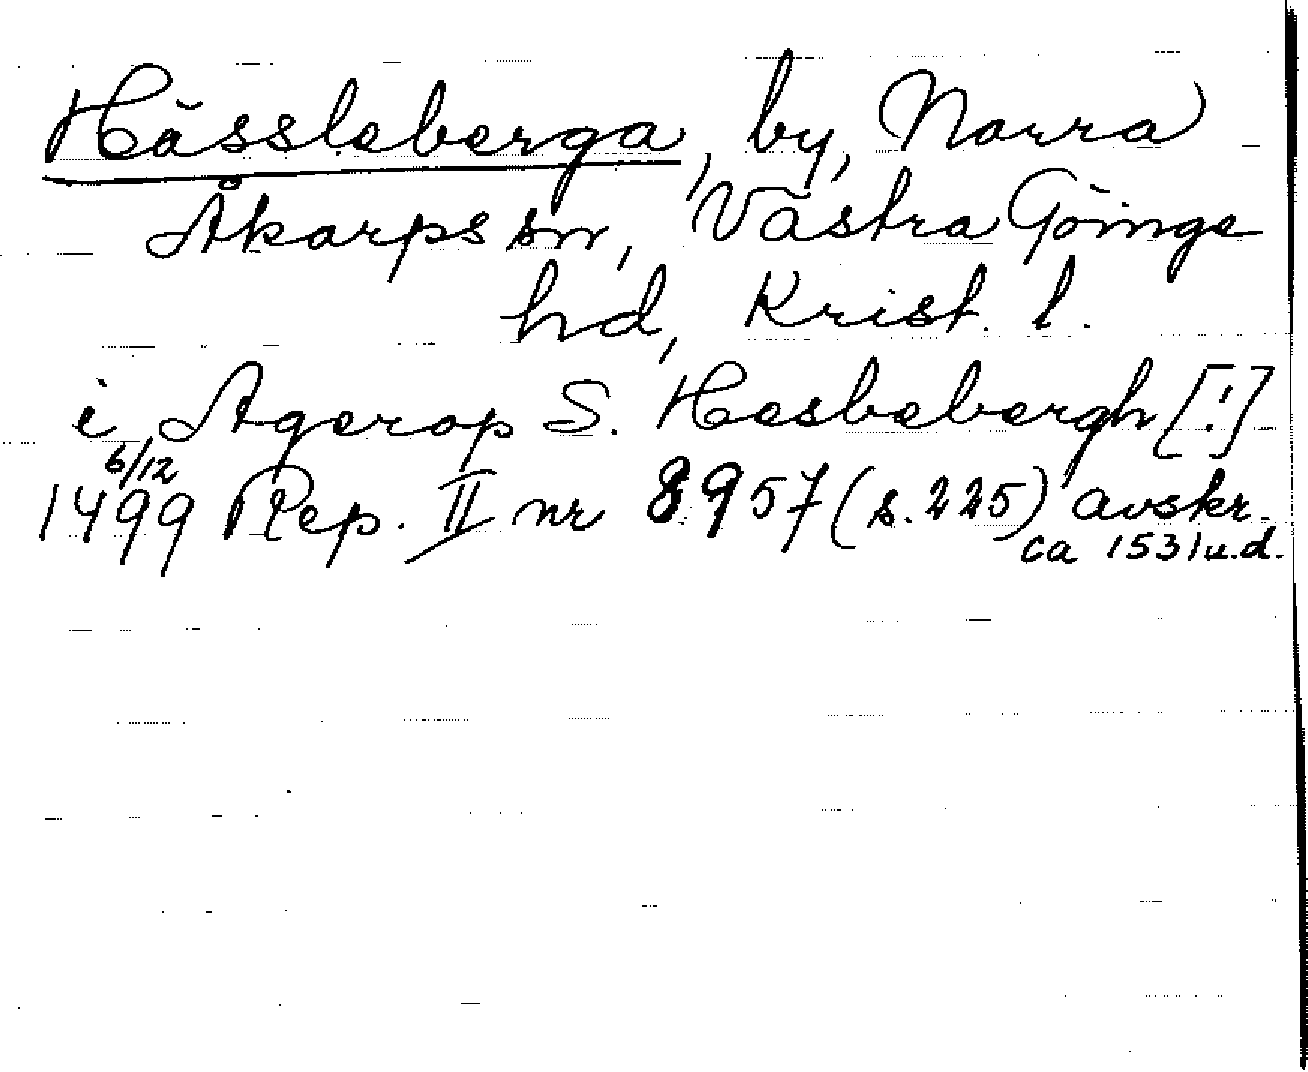 Hässleberga, by, Norra
Åkarps sn, Västra Göinge
hd, Krist. l.
i Agerop S. Hesbebergh [!]
6/12
1499 Rep. II nr 8957 (s. 225) avskr.
ca 1531 u.d.